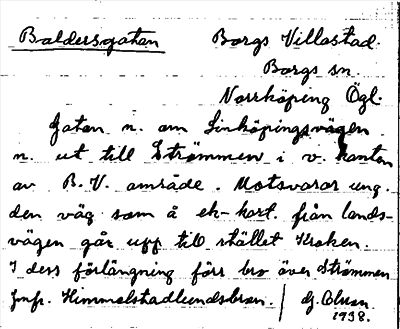 Baldersgatan
Borgs Villastad.
Borgs sn.
Norrköping Ögl.
Gatan n. om Linköpingsvägen
n. ut till Strömmen i v. kanten
av B.V. område. Motsvarar ung.
den väg som å ek-kart. från lands-
vägen går upp till stället Kroken.
I dess förlängning förr bro över Strömmen
Jmfr. Himmelstadlundsbron. /
1938.